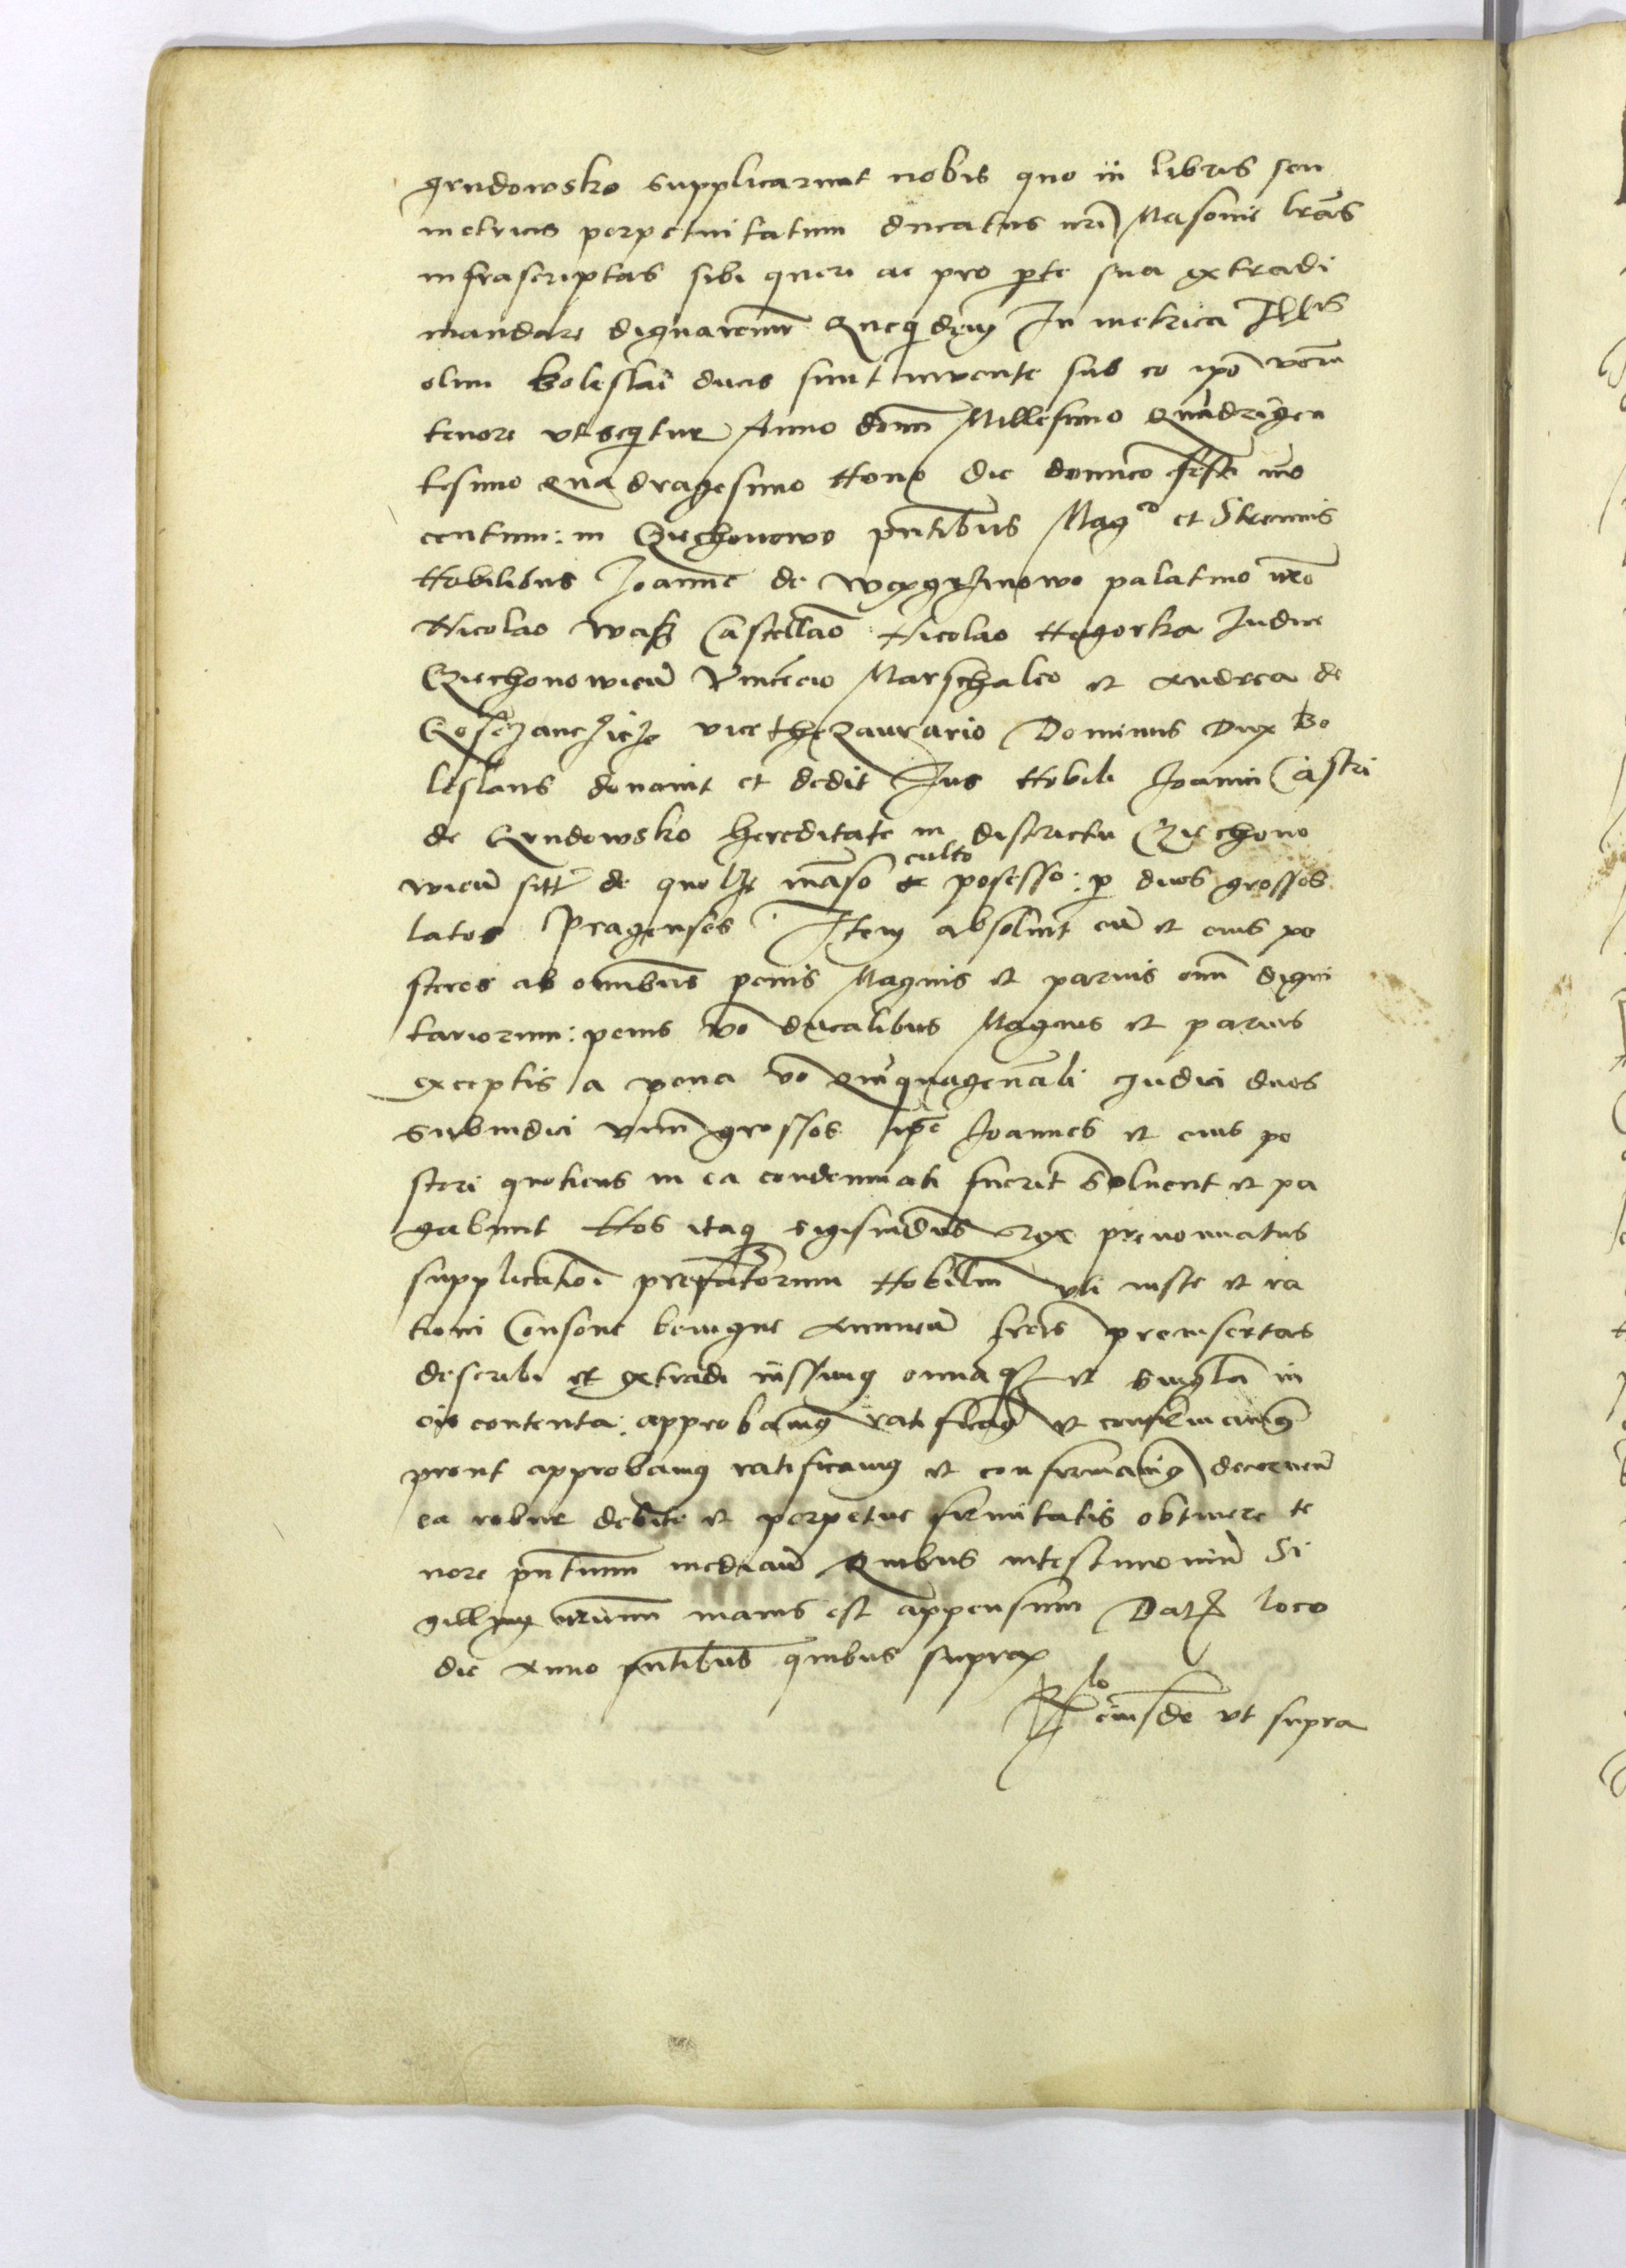 grudowsko supplicarunt nobis quo in libris seu
metricis perpetuitatum ducatus nri Masovie lras
infrascriptas sibi queri ac pro pte sua extradi
mandare dignaremur Quequidem In metrica Illris
olim Boleslai ducis sunt invente sub eo ipo verm
tenore ut sequitur Anno domi Millesimo Quadringen
tesimo Quadragesimo Nono die dominico festi inno
centum: in Cziechonowo pntibus Magco et Strenuis
Nobilibus Joanne de palatino nro
Nicolao Castellano Nicolao Nagorka Judice
Cziechonowien Vincencio Marschalco et Andrea de
vicethezaurario Dominus Dux Bo
leslaus donavit et dedit Jus Nobili Joanni Castri
de Grudowsko hereditate in districtu Cziechono
wien sitt de quolz manso culto et posesso: p duos grossos
latos Pragenses Item absoluit eum et eius po
steros ab omnibus penis Magnis et parvis omm digni
tariorum: penis vo ducalibus Magnis et parvis
exceptis a pena vo quinquagenali Judici duos
subiudici unum grossos ipse Joannes et eius po
steri quotiens in ea condemnati fuerit soluent et pa
gabunt Nos itaque sigismdus rex prenominatus
supplicationi prefatorum Nobilium uti iuste et ra
tioni Consone benigne Annuen lras preinsertas
describi et extradi iussimus omniaque et singula in
eis contenta: approbamus ratificamus et confirmamus
prout approbamus ratificamus et confirmamus decernen
ea robur debite et perpetue firmitatis obtinere te
nore pntium median Quibus intestimonium Si
gillum nrum maius est appensum Datum loco
die Anno pntibus quibus supra
Rlo eiusde ut supra